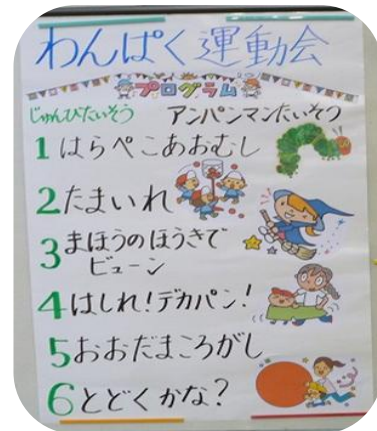 わんぱく運動会
プログラム
じゅんびたいそう アンパンマンたいそう
1 はらぺこあおむし
2 たまいれ
3 まほうのほうきで
ビューン
4 はしれ!デカパン!
5 おおだまころがし
6 とどくかな?